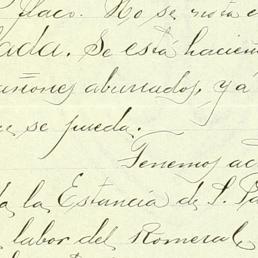 flaco. No se nota
lada. Se está hacien
añones aburrados, ya
se pueda.
Tenemos ac
la Estancia de S. Pa
labor del Romeral